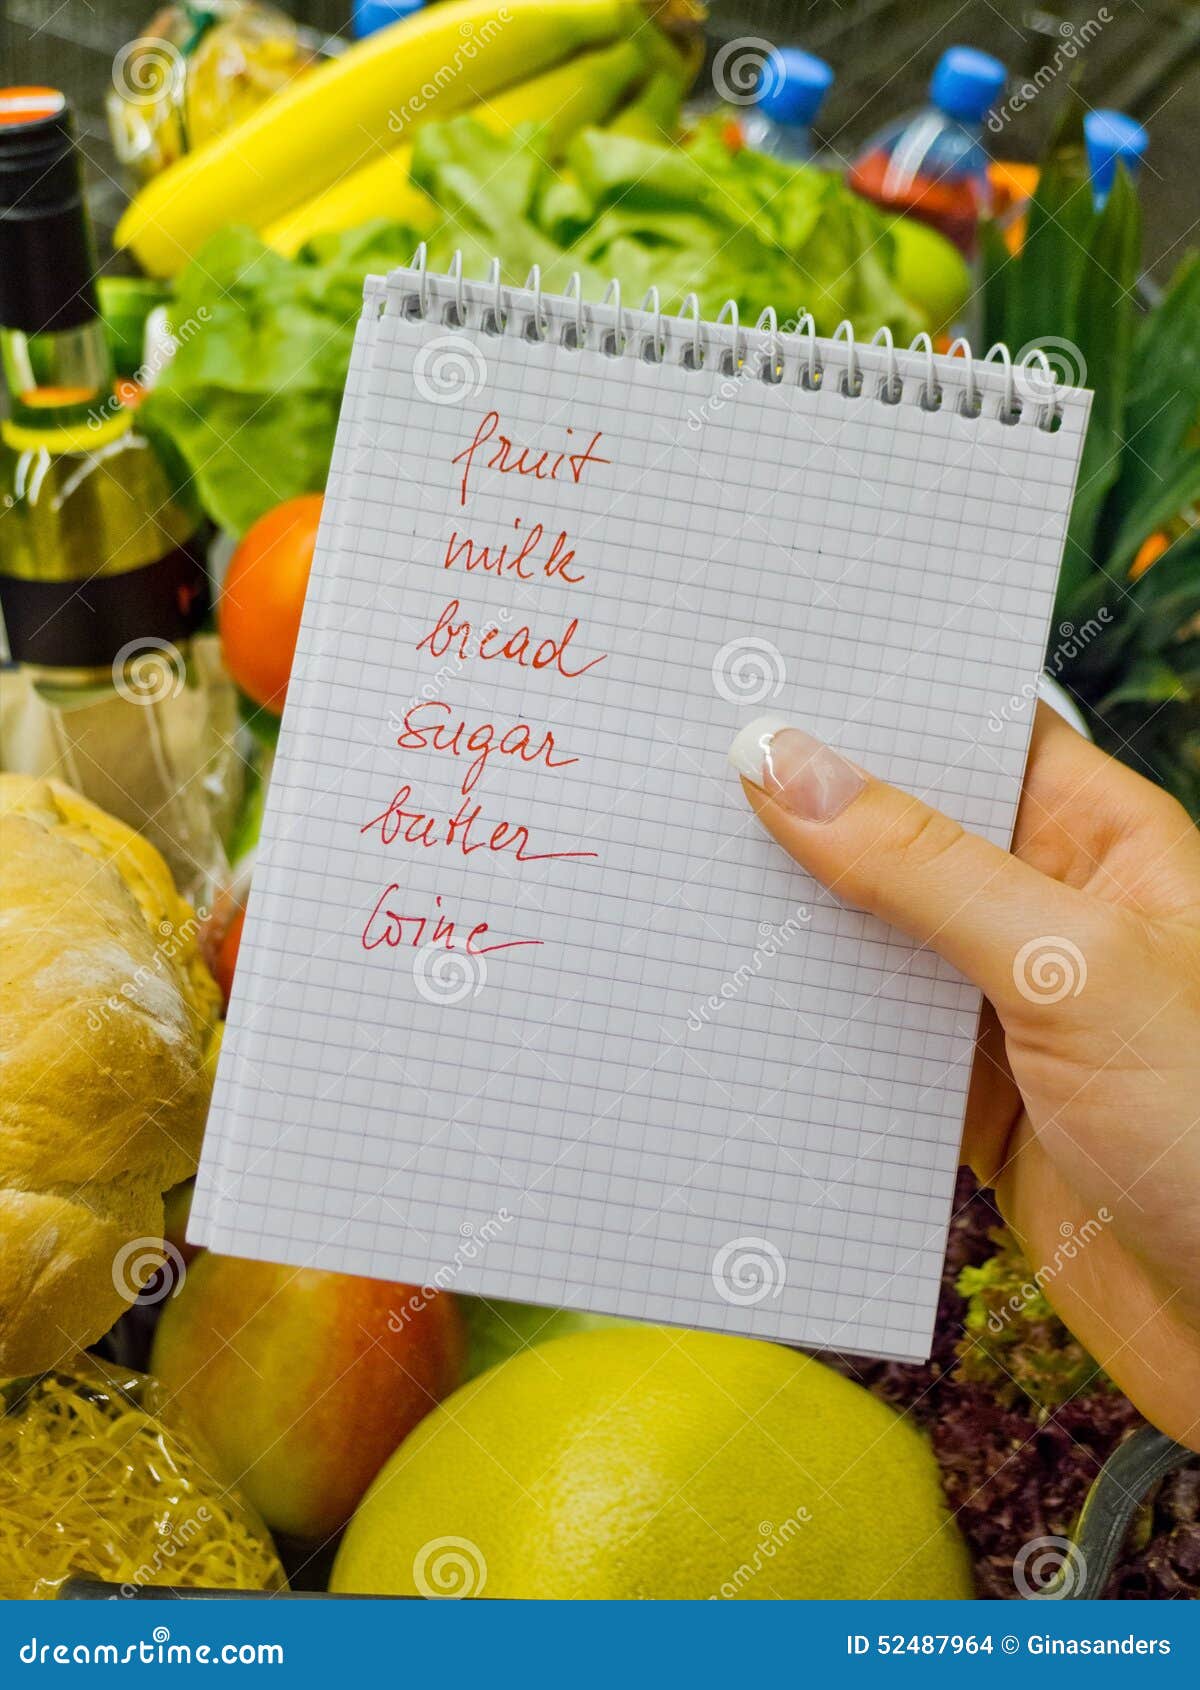 fruit
milk
bread
Sugar
butter
Wine
dreamstime.com
ID 52487964 © Ginasanders